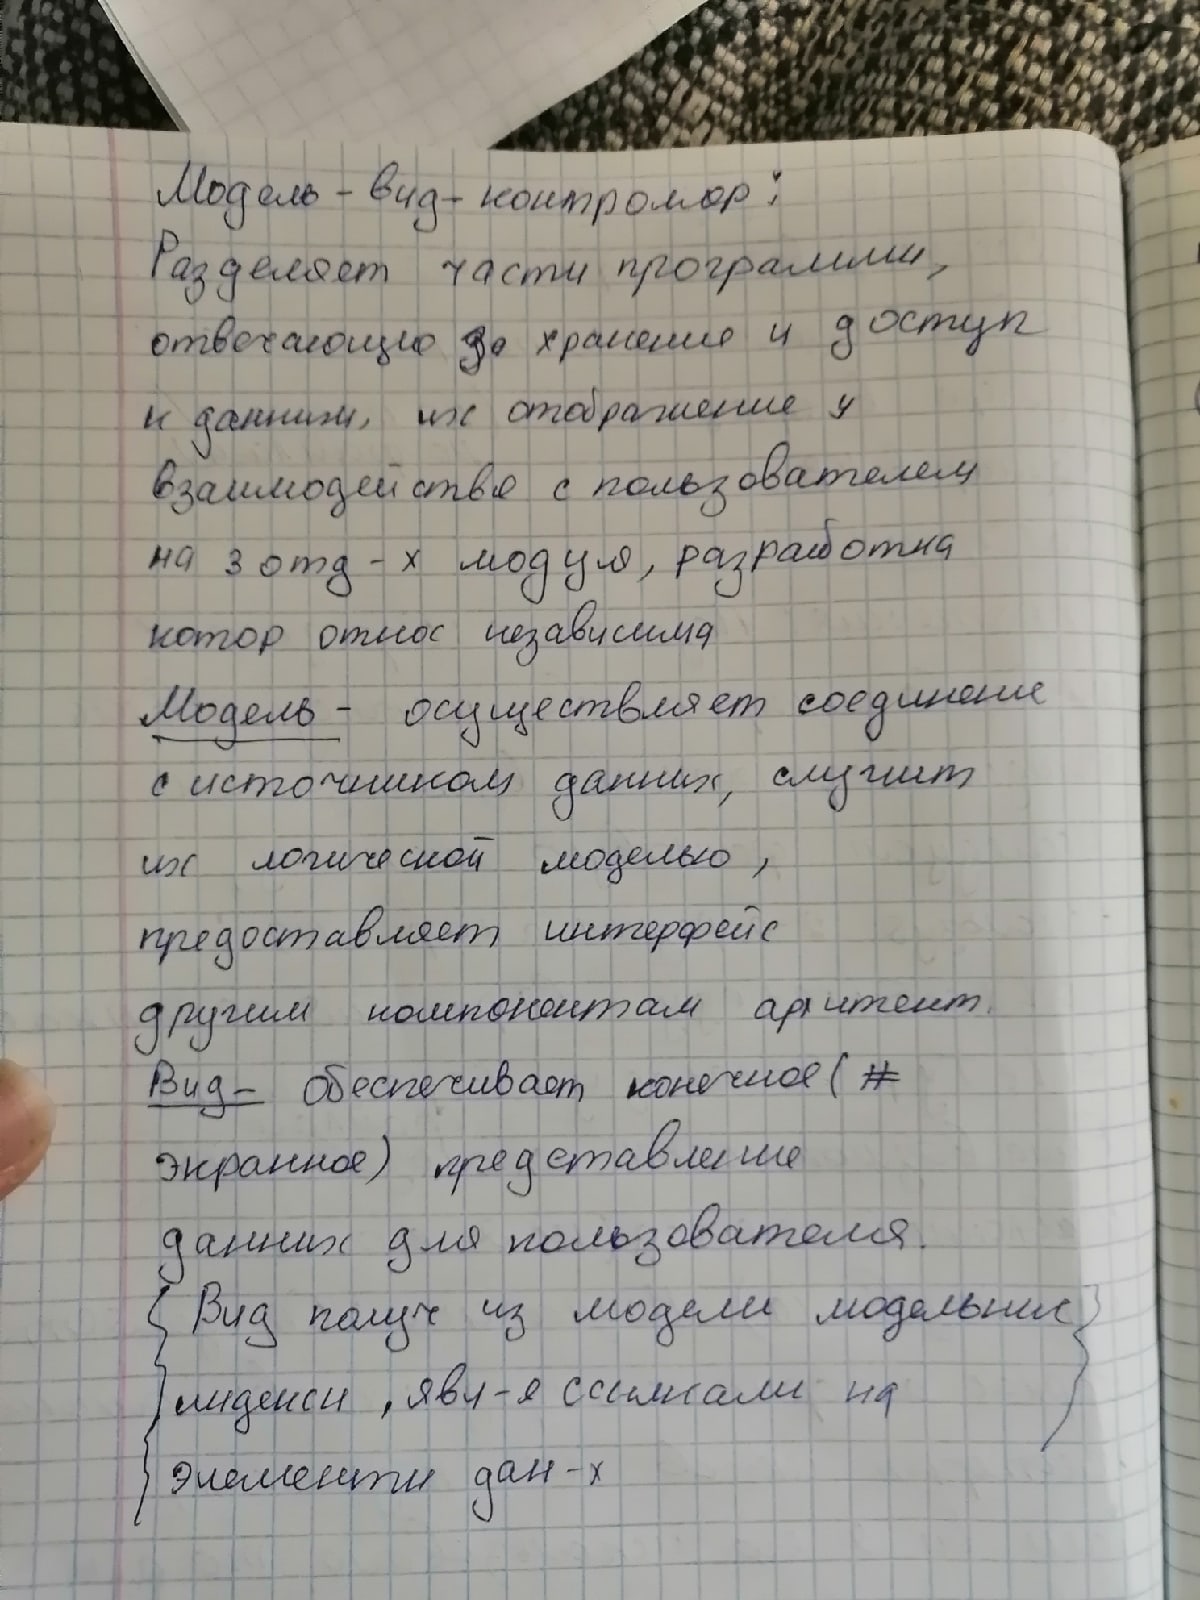 Модель - вид - контролор:
Разделяет части программи,
отвечающие за хранение и доступ
к данним, их отображение и
взаимодействие с пользователем
на 3 отд-х модуля, разработка
котор относ независима
Модель - осуществляет соединение
с источником данних, служит
их логической моделью,
предоставляет интерфейс
другим компонентам архитект.
Вид - Обеспечивает конечное (
экранное) представление
данних для пользователя.
{ Вид получ из модели модельних }
индекси, явл-я ссилками на
элементи дан-х